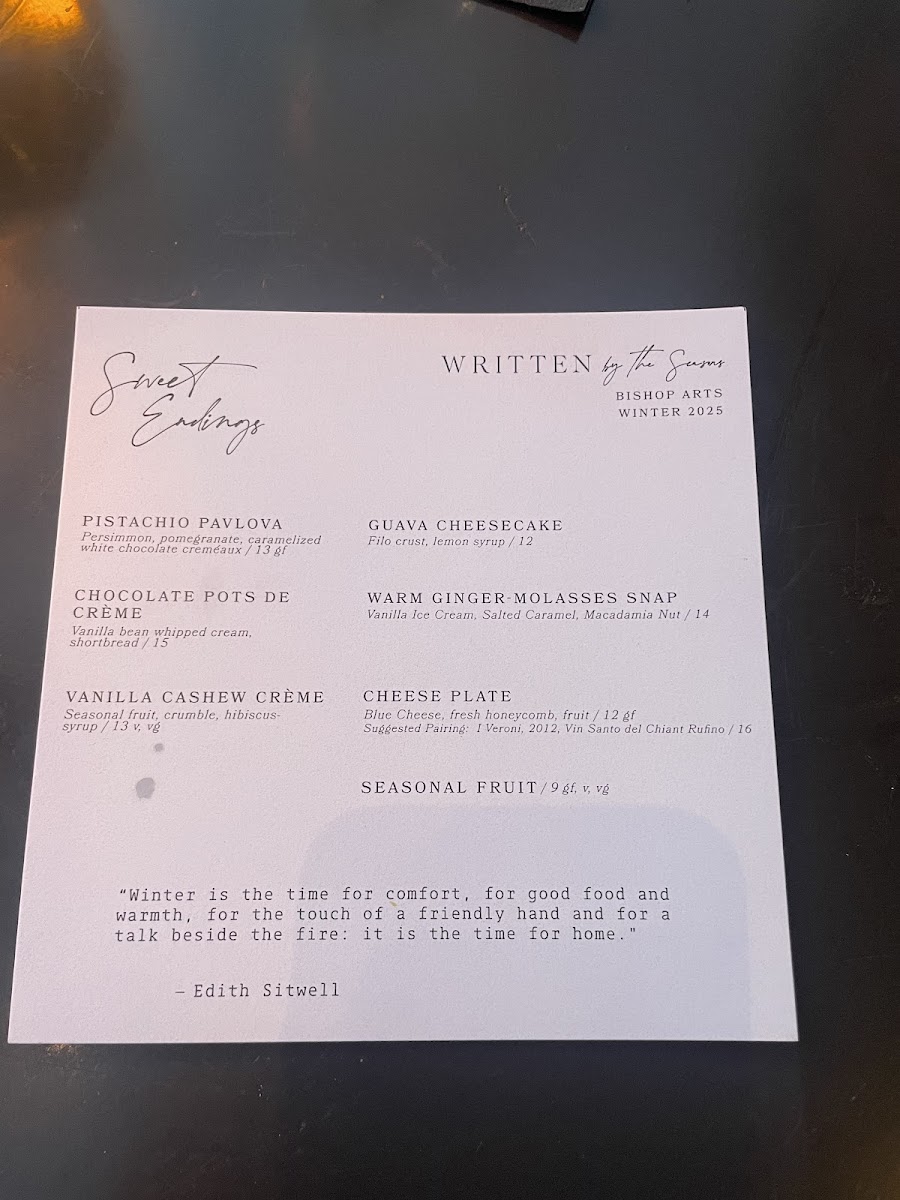 Sweet
Endings
WRITTEN by the Seasons
BISHOP ARTS
WINTER 2025
PISTACHIO PAVLOVA
Persimmon, pomegranate, caramelized
white chocolate creméaux / 13 gf
CHOCOLATE POTS DE
CRÈME
Vanilla bean whipped cream,
shortbread / 15
VANILLA CASHEW CRÈME
Seasonal fruit, crumble, hibiscus-
syrup / 13 v, vg
GUAVA CHEESECAKE
Filo crust, lemon syrup / 12
WARM GINGER-MOLASSES SNAP
Vanilla Ice Cream, Salted Caramel, Macadamia Nut / 14
CHEESE PLATE
Blue Cheese, fresh honeycomb, fruit / 12 gf
Suggested Pairing: I Veroni, 2012, Vin Santo del Chiant Rufino / 16
SEASONAL FRUIT / 9 gf, v, vg
“Winter is the time for comfort, for good food and
warmth, for the touch of a friendly hand and for a
talk beside the fire: it is the time for home."
– Edith Sitwell